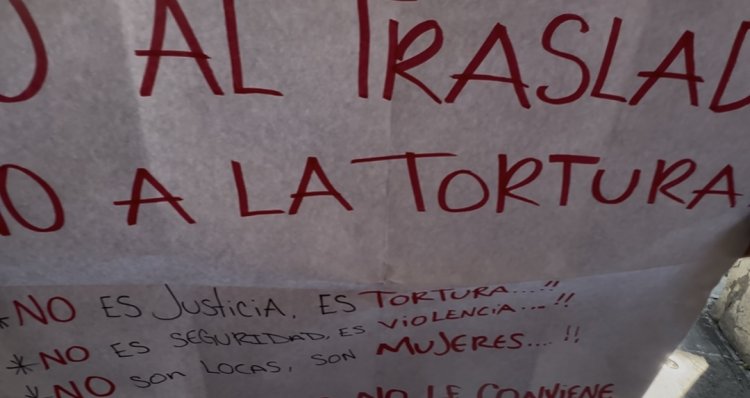 O AL TRASLAD
NO A LA TORTURA
*NO ES JUSTICIA, ES TORTURA...!!
*NO ES SEGURIDAD, ES VIOLENCIA...!!
*NO SON LOCAS, SON MUJERES....!!
NO LE CONVIENE